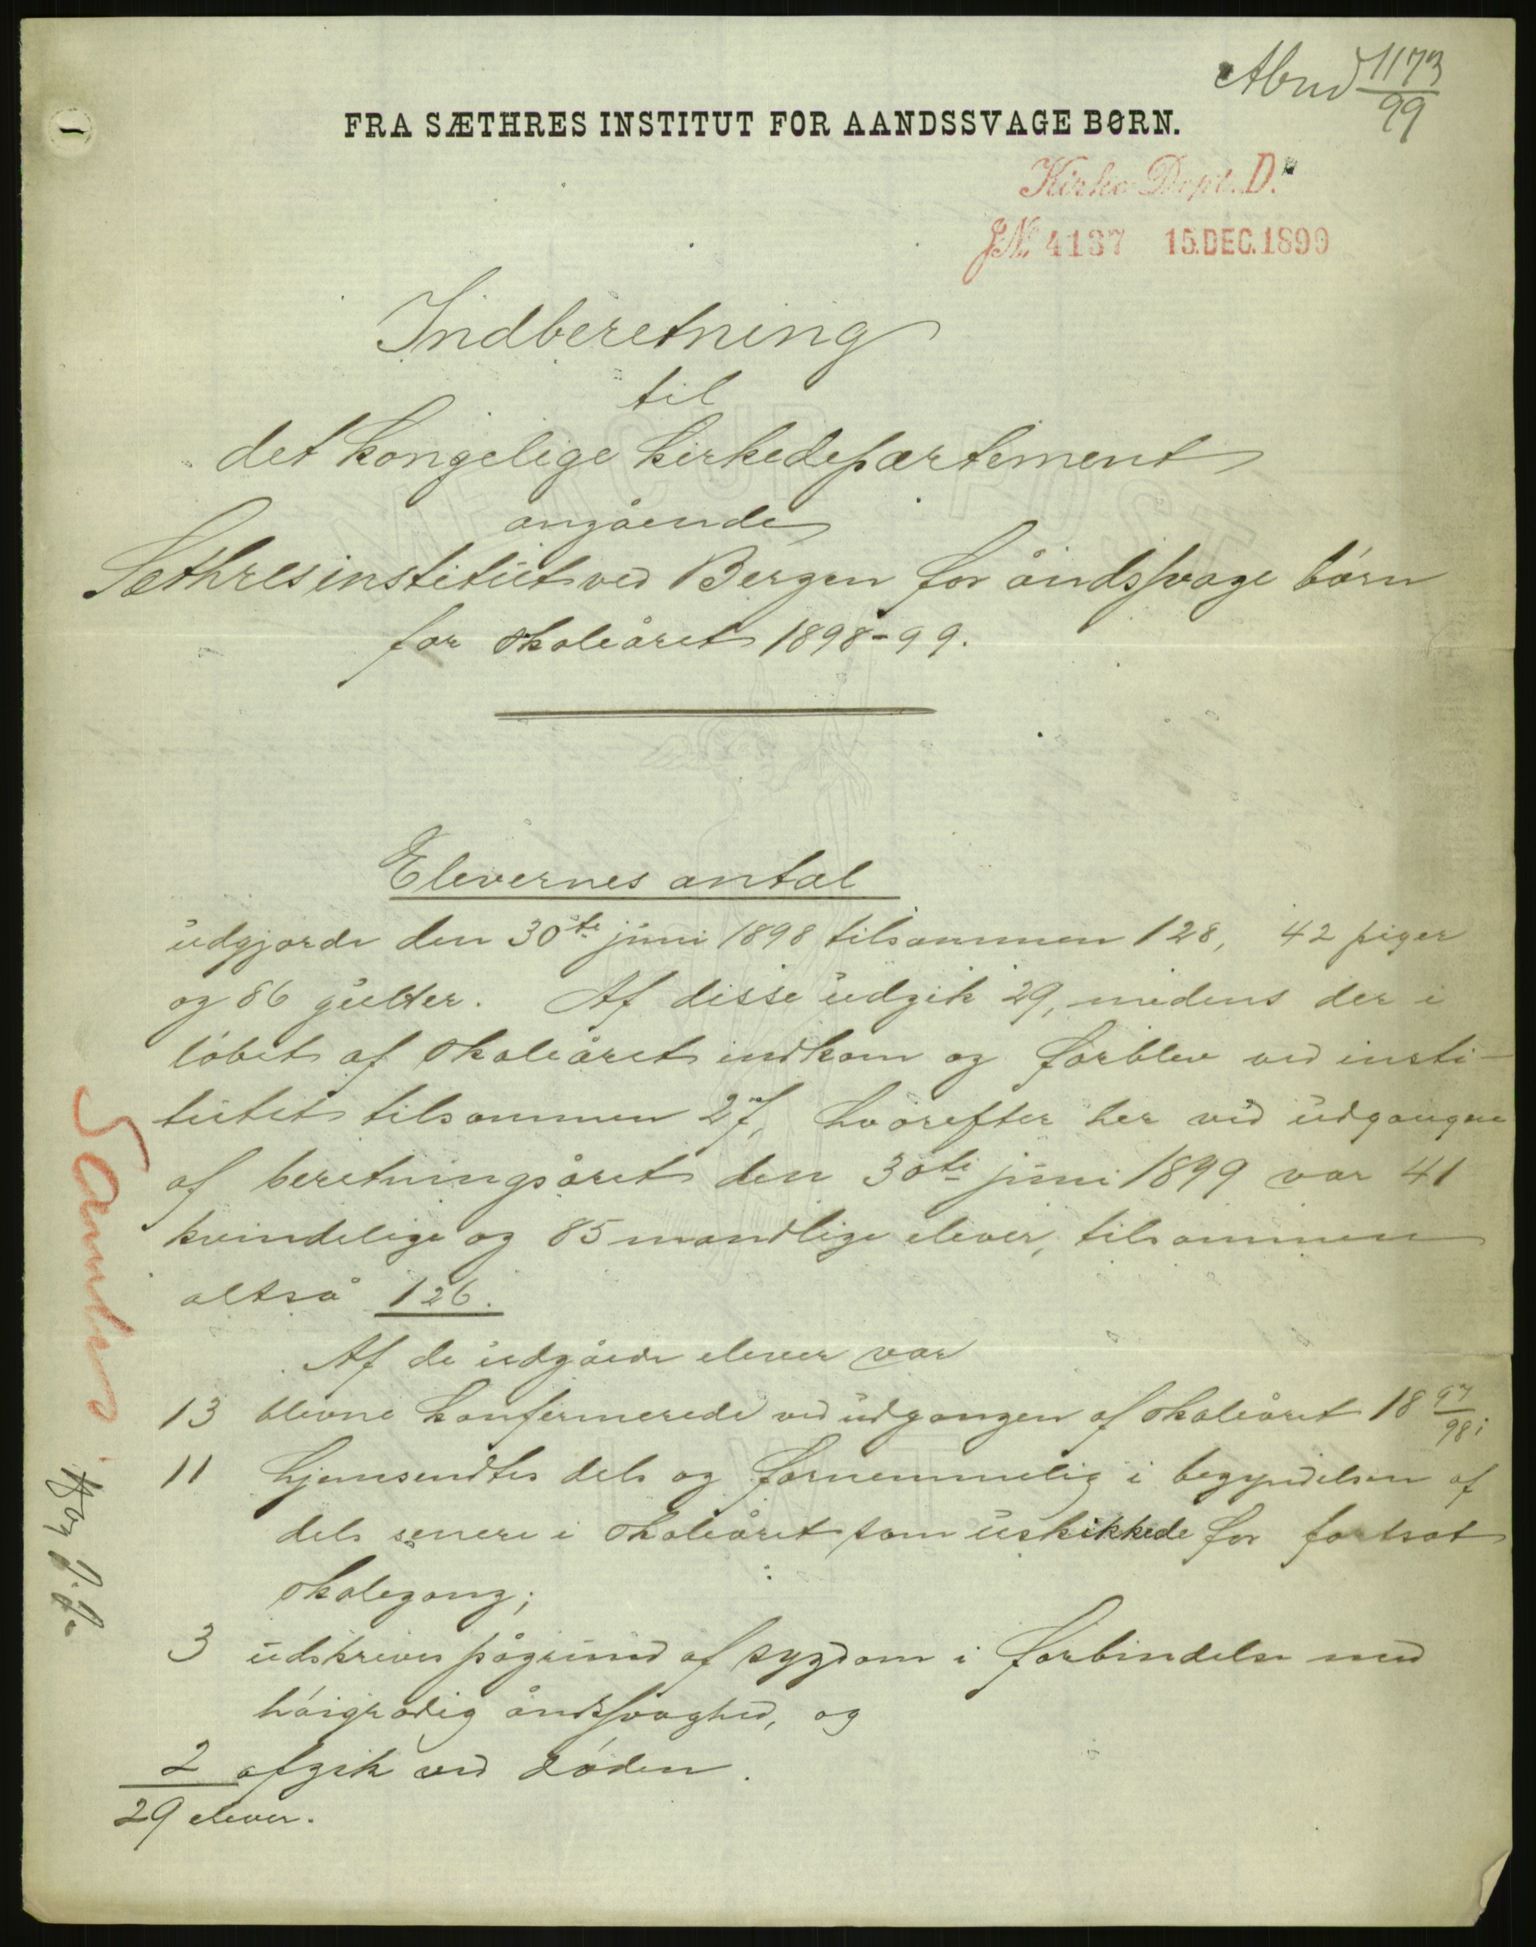 Abnd 1173/99
FRA SÆTHRES INSTITUT FOR AANDSSVAGE BØRN.
Kirke-Dept. D.
JN. 4137 15.DEC.1899
Indberetning
til
det kongelige kirkedepartement
angående
Sæthres institut ved Bergen for åndssvage børn
for skoleåret 1898-99.
Elevernes antal
udgjorde den 30te juni 1898 tilsammen 128, 42 piger
og 86 gutter. Af disse udgik 29, medens der i
løbet af skoleåret indkom og forblev ved insti-
tutet tilsammen 27, hvorefter her ved udgangen
af beretningsåret den 30te juni 1899 var 41
kvindelige og 85 mandlige elever, tilsammen
altså 126.
Af de udgåede elever var
13 blevne konfirmerede ved udgangen af skoleåret 1897/98;
11 hjemsendtes dels og fornemmelig i begyndelsen af
dels senere i skoleåret som uskikkede for fortsat
skolegang;
3 udskreves pågrund af sygdom i forbindelse med
høigradig åndssvaghed, og
2 afgik ved døden.
29 elever.